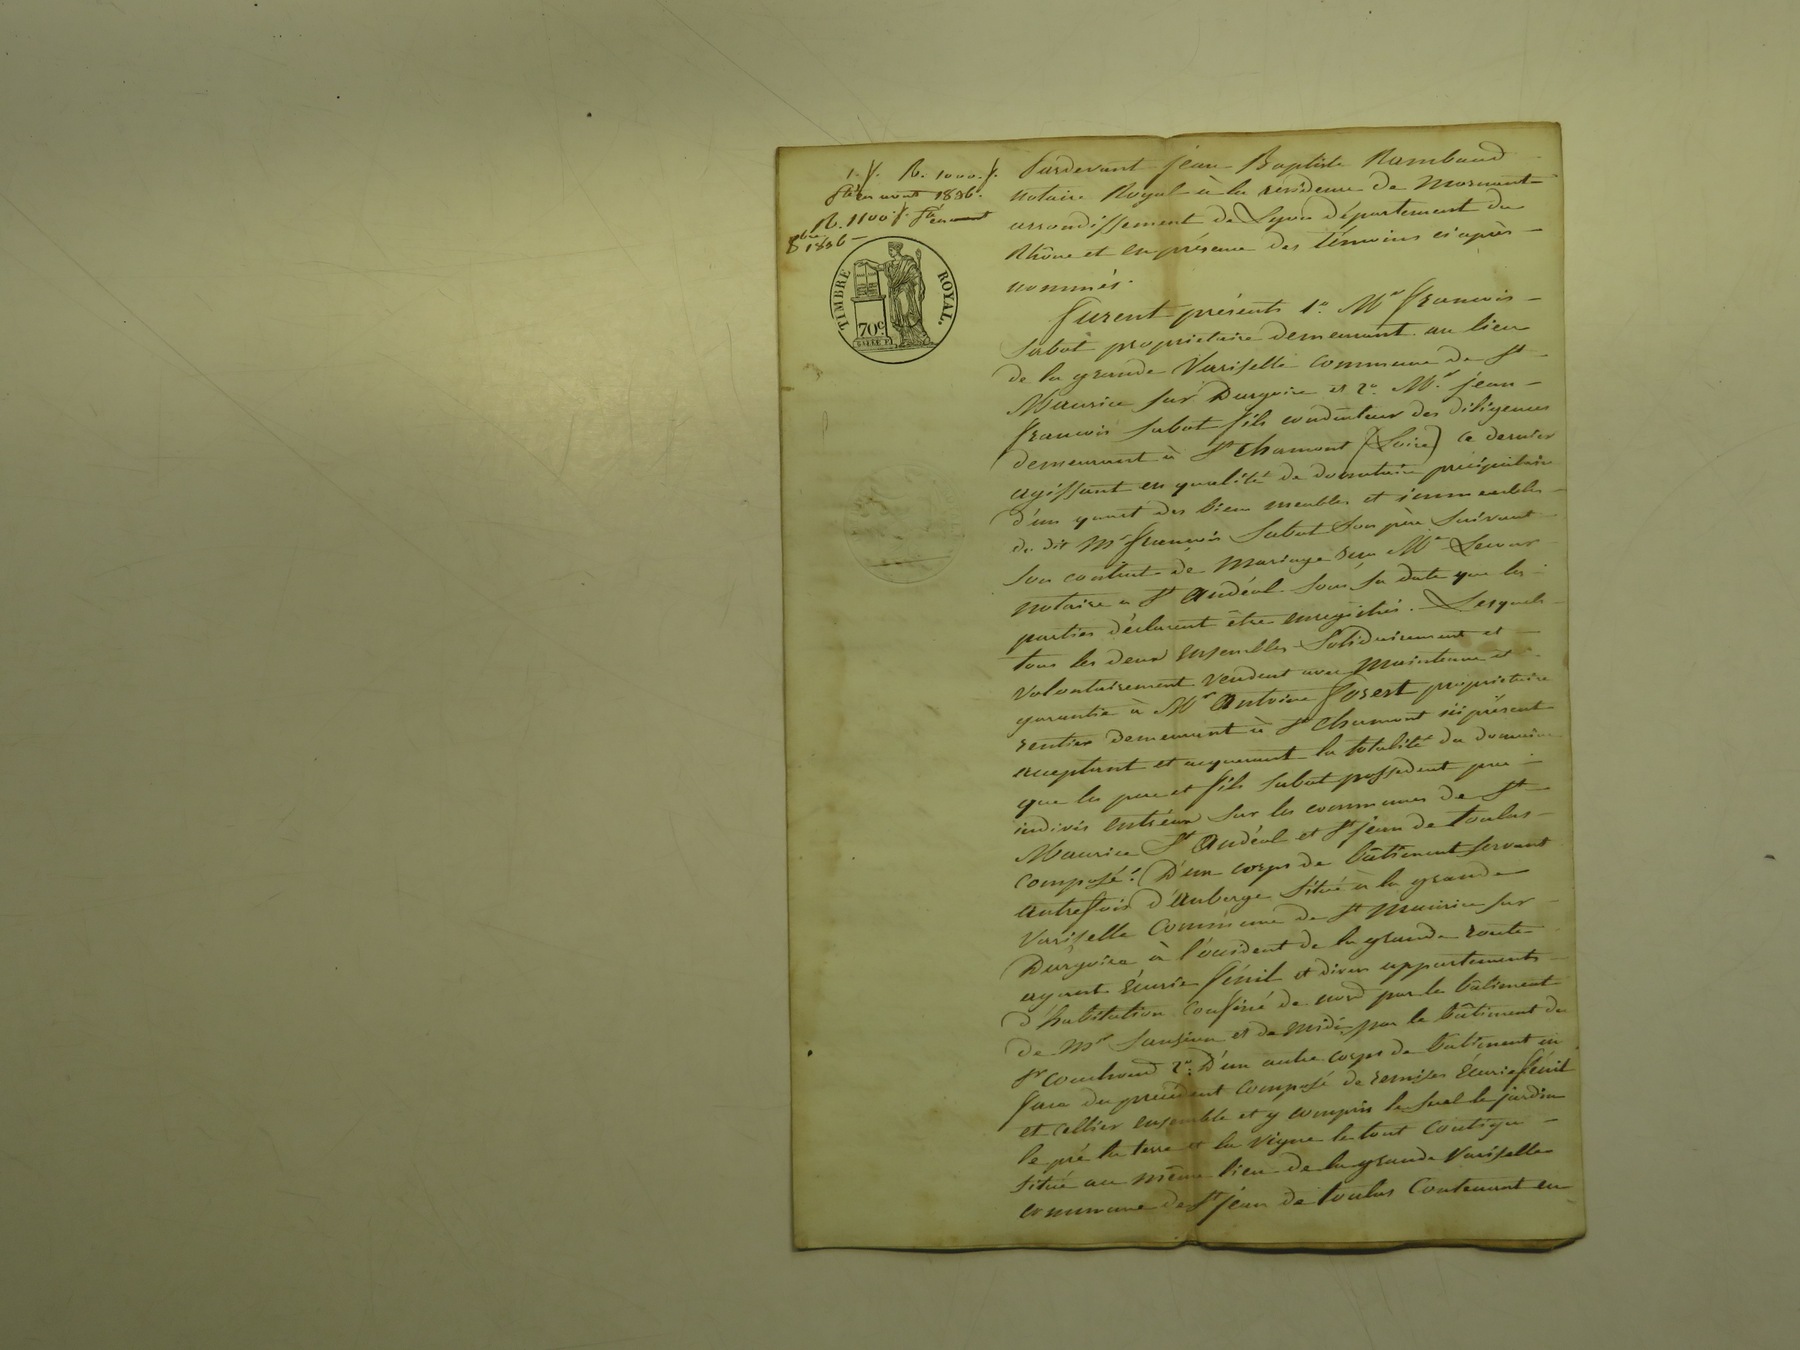 1. f. R. 1000. f.
en avril 1836.
R. 1100 f.
8bre 1836
TIMBRE ROYAL.
70c
Pardevant Jean Baptiste Rambaud
notaire Royal à la résidence de Mornant
arrondissement de Lyon département du
Rhône et en présence des témoins ci après
nommés.
Furent présents 1o. Mr francois
Sabot propriétaire demeurant au lieu
de la grande Variselle commune de St
Maurice sur Dargoire et 2o. Mr. jean
francois Sabot fils conducteur des diligences
demeurant à St Chamont (Loire) ce dernier
agissant en qualité de donataire précipuaire
d'un quart des biens meubles et immeubles
du dit Mr francois Sabot son père suivant
son contrat de mariage reçu Me
notaire a St Andéol sous sa date que les
parties déclarent être enregistré. Lesquels
tous les deux ensembles solidairement et
volontairement vendent avec maintenue et
garantie à Mr Antoine forest propriétaire
rentier demeurant à St Chamont ici présent
acceptant et acquerant la totalité du domaine
que les pere et fils Sabot possedent par
indivis entr'eux sur les communes de St
Maurice St Andéol et St jean de Toulas
composé: D'un corps de bâtiment servant
autrefois d'Auberge situé à la grande
Variselle Commune de St Maurice sur
Dargoire à l'occident de la grande route
ayant écurie fénil et divers appartements
d'habitation confiné de nord par le bâtiment
de Mr et de midi par le bâtiment du
Sr 2o. D'un autre corps de bâtiment en
face du précédent composé de remises écurie fénil
et cellier ensemble et y compris le sual le jardin
le pré la terre et la vigne le tout contigu
situé au même lieu de la grande Variselle
commune de St jean de Toulas Contenant en